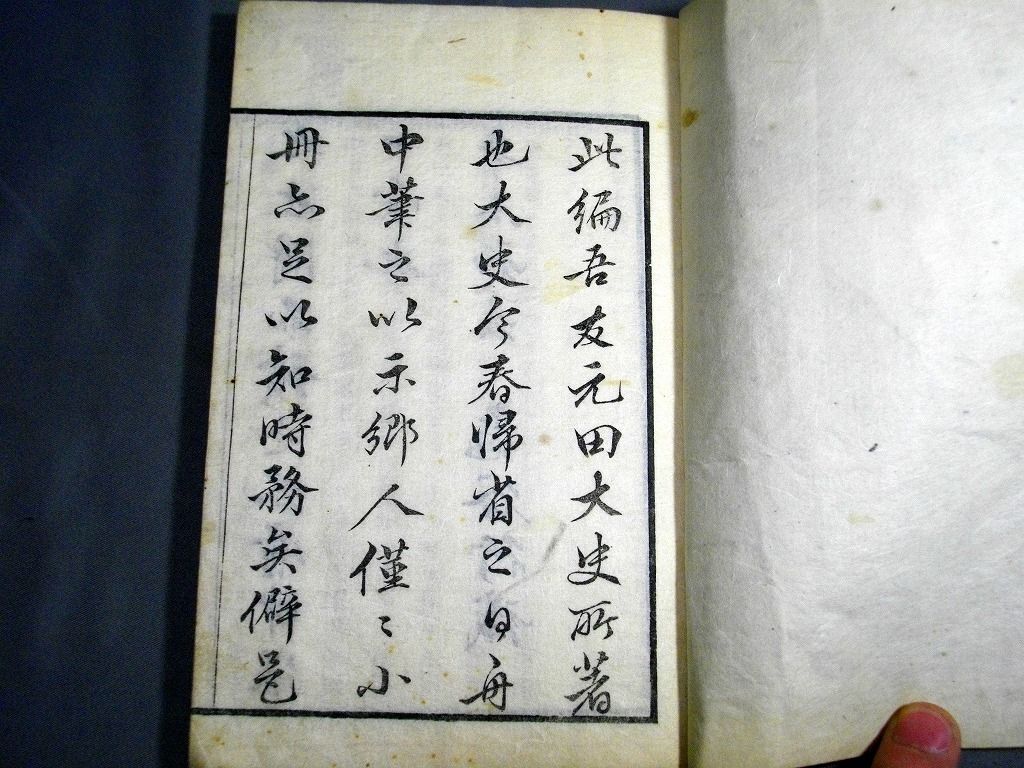 此編吾友元田大史所著
也大史今春帰省之日舟
中筆之以示郷人僅〻小
冊亦足以知時務矣僻邑